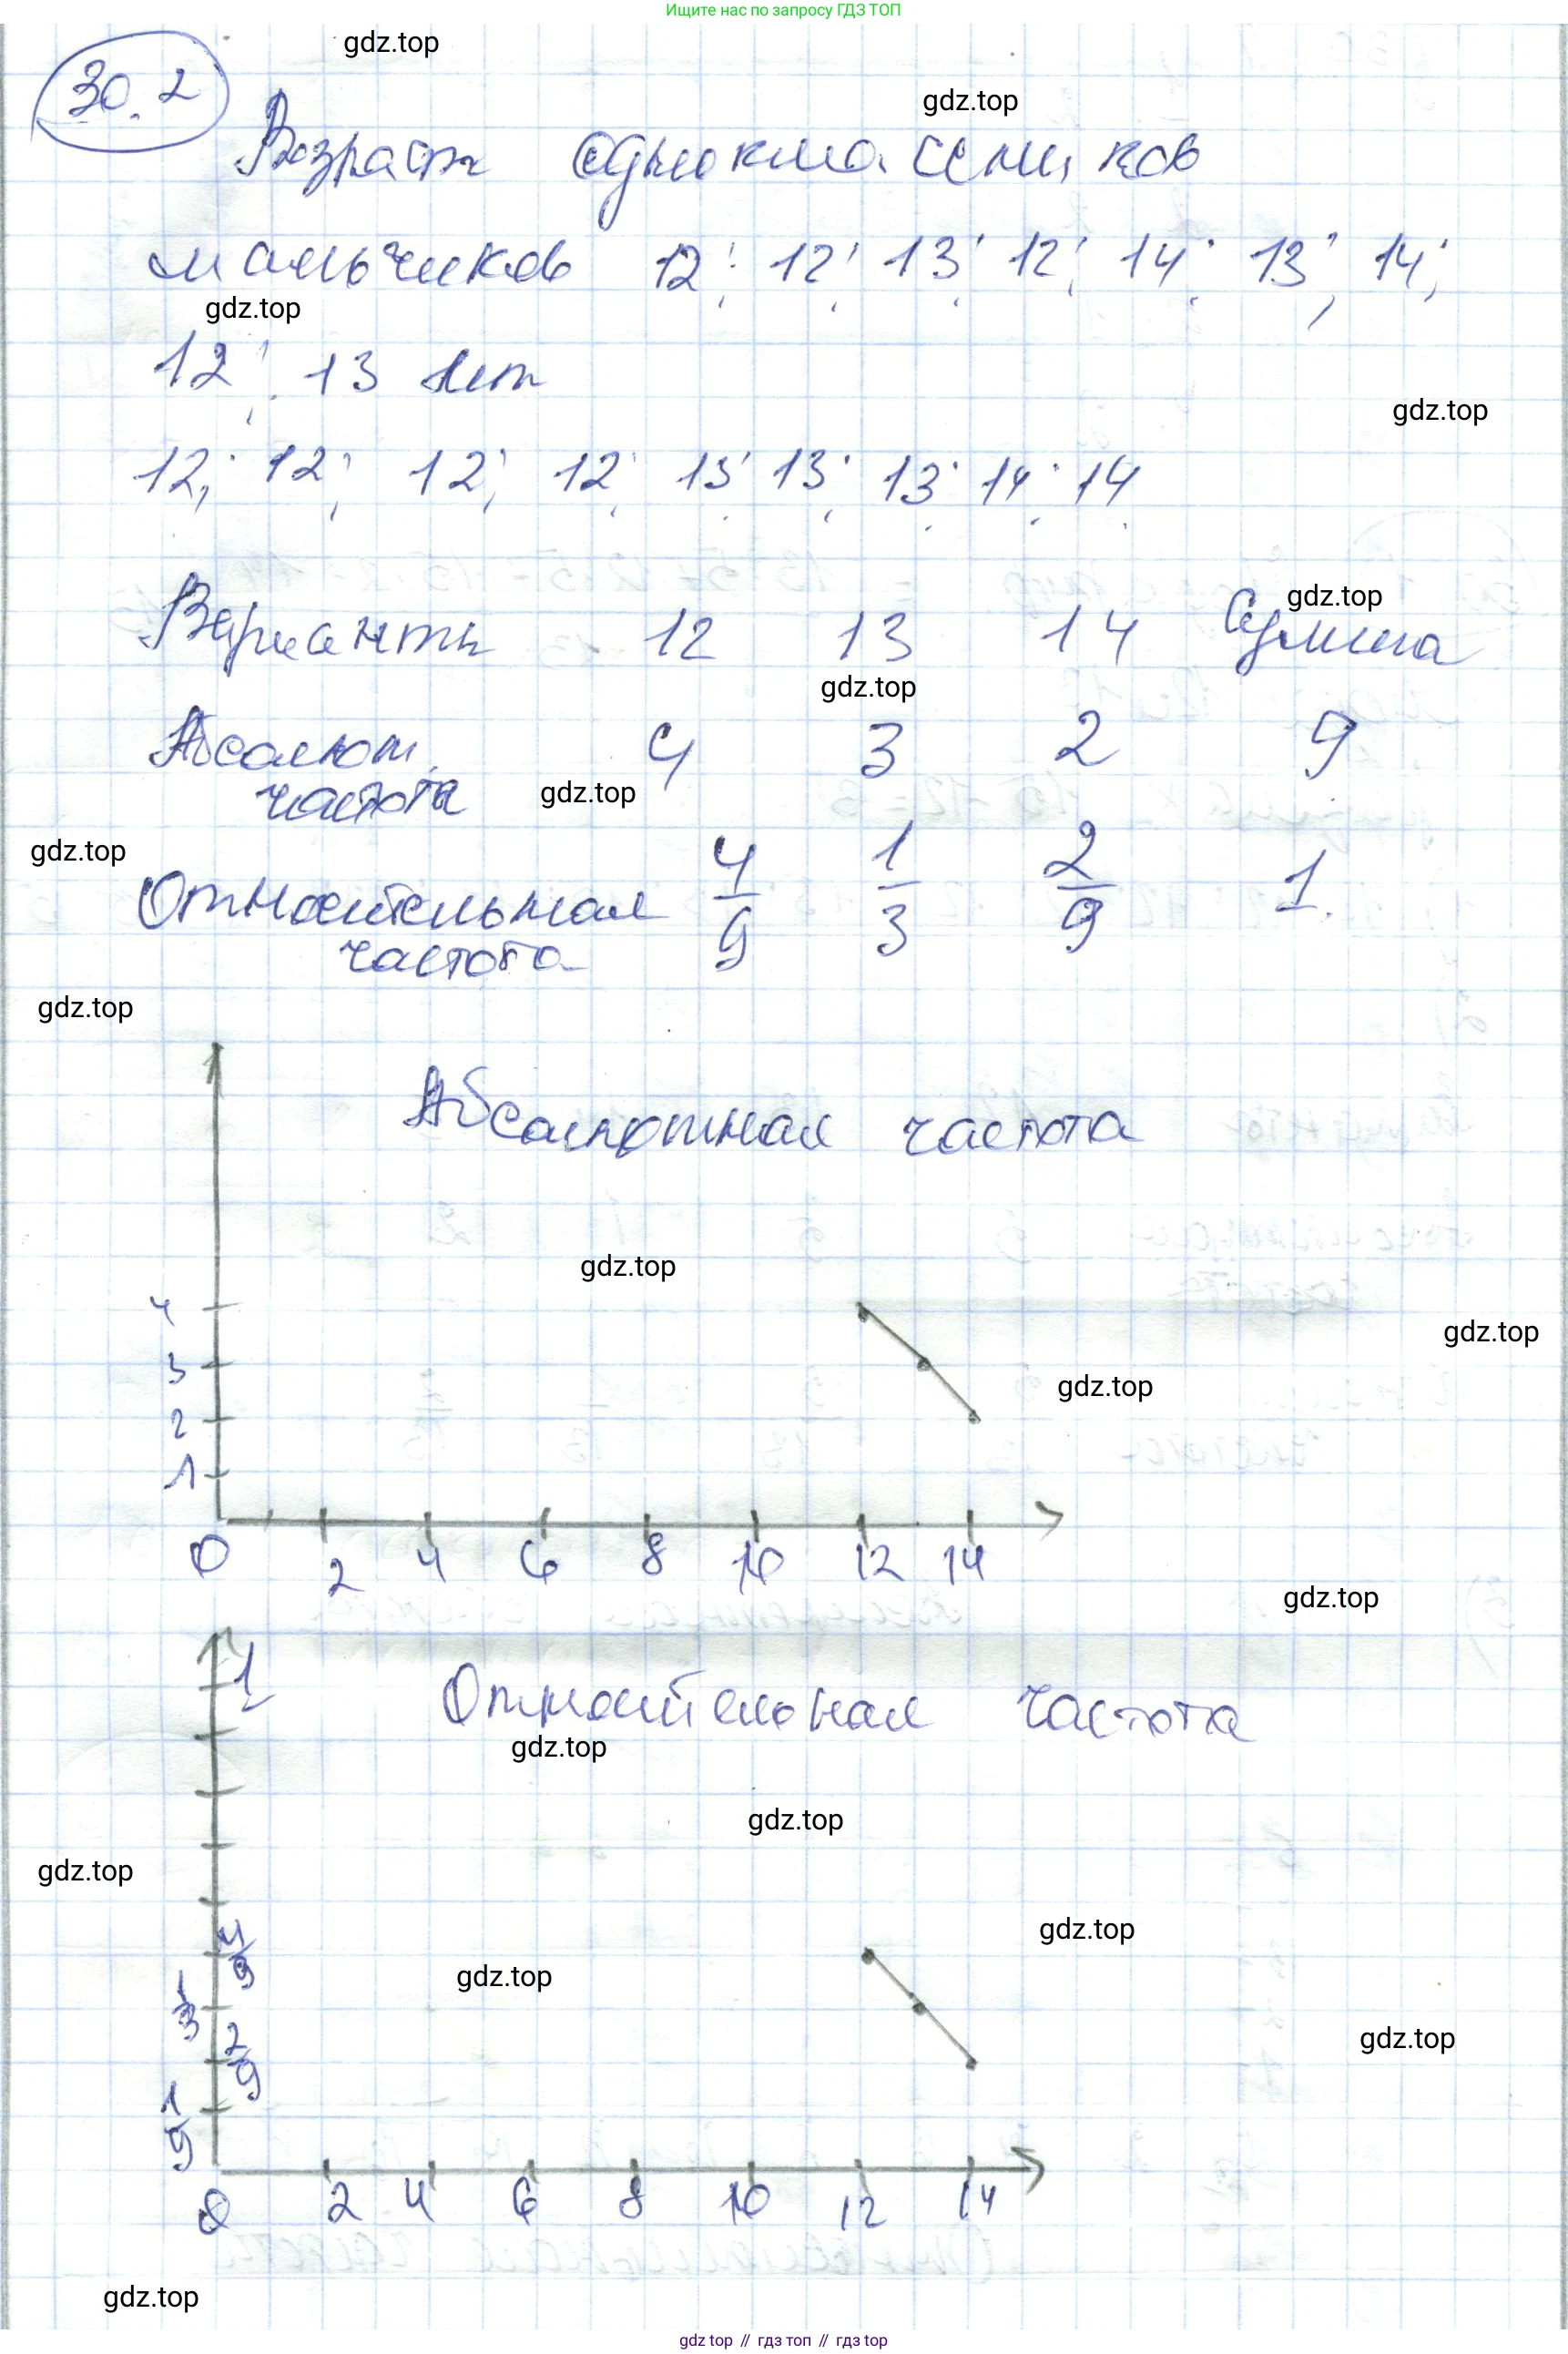 Ищите нас по запросу ГДЗ ТОП
gdz.top
30.2
gdz.top
Возраст одноклассников
мальчиков 12; 12; 13; 12; 14; 13; 14;
gdz.top
12; 13 лет
gdz.top
12; 12; 12; 12; 13; 13; 13; 14; 14
gdz.top
Варианты 12 13 14 Сумма
gdz.top
Абсолют. 4 3 2 9
частота
gdz.top
gdz.top
Относительная 4/9 1/3 2/9 1.
частота
gdz.top
Абсолютная частота
gdz.top
4
gdz.top
3
gdz.top
2
1
0 2 4 6 8 10 12 14
gdz.top
1
Относительная частота
gdz.top
gdz.top
gdz.top
gdz.top
4/9
gdz.top
1/3
gdz.top
2/9
1/9
0 2 4 6 8 10 12 14
gdz.top
gdz top // гдз топ // гдз top